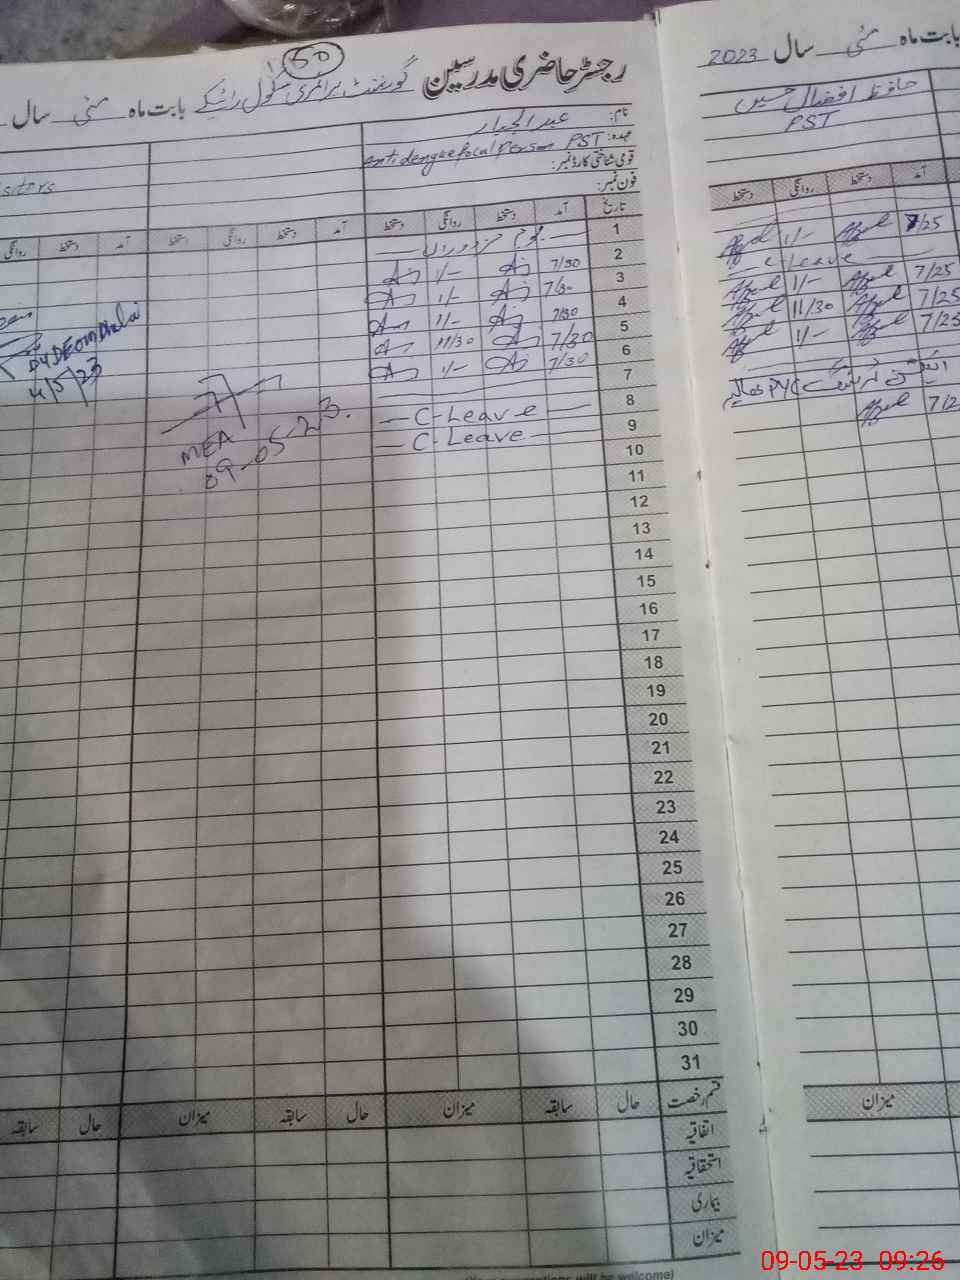 50
رجسٹر حاضری مدرسین گورنمنٹ پرائمری سکول بابت ماہ مئی سال
نام: عبدالجبار
عہدہ: PST anti dengue focal Person
قومی شناختی کارڈ نمبر:
فون نمبر:
تاریخ آمد دستخط روانگی دستخط آمد دستخط روانگی دستخط آمد دستخط روانگی
1 یوم مزدوراں
2 7/30 1/-
3 7/30 1/-
4 7/30 1/-
5 7/30 11/30
6 7/30 1/-
7
8 C-Leave
9 C-Leave
10
11
12
13
14
15
16
17
18
19
20
21
22
23
24
25
26
27
28
29
30
31
قسم رخصت حال سابقہ میزان حال سابقہ میزان حال سابقہ
اتفاقیہ
استحقاقیہ
بیماری
میزان
MEA
09-05-23.
Dy DEO m
4/5/23
بابت ماہ مئی سال 2023
حافظ افضال حسین
PST
آمد دستخط روانگی دستخط
7/25 1/-
C Leave
7/25 1/-
7/25 11/30
7/25 1/-
7/2
میزان
will be welcome)
09-05-23 09:26